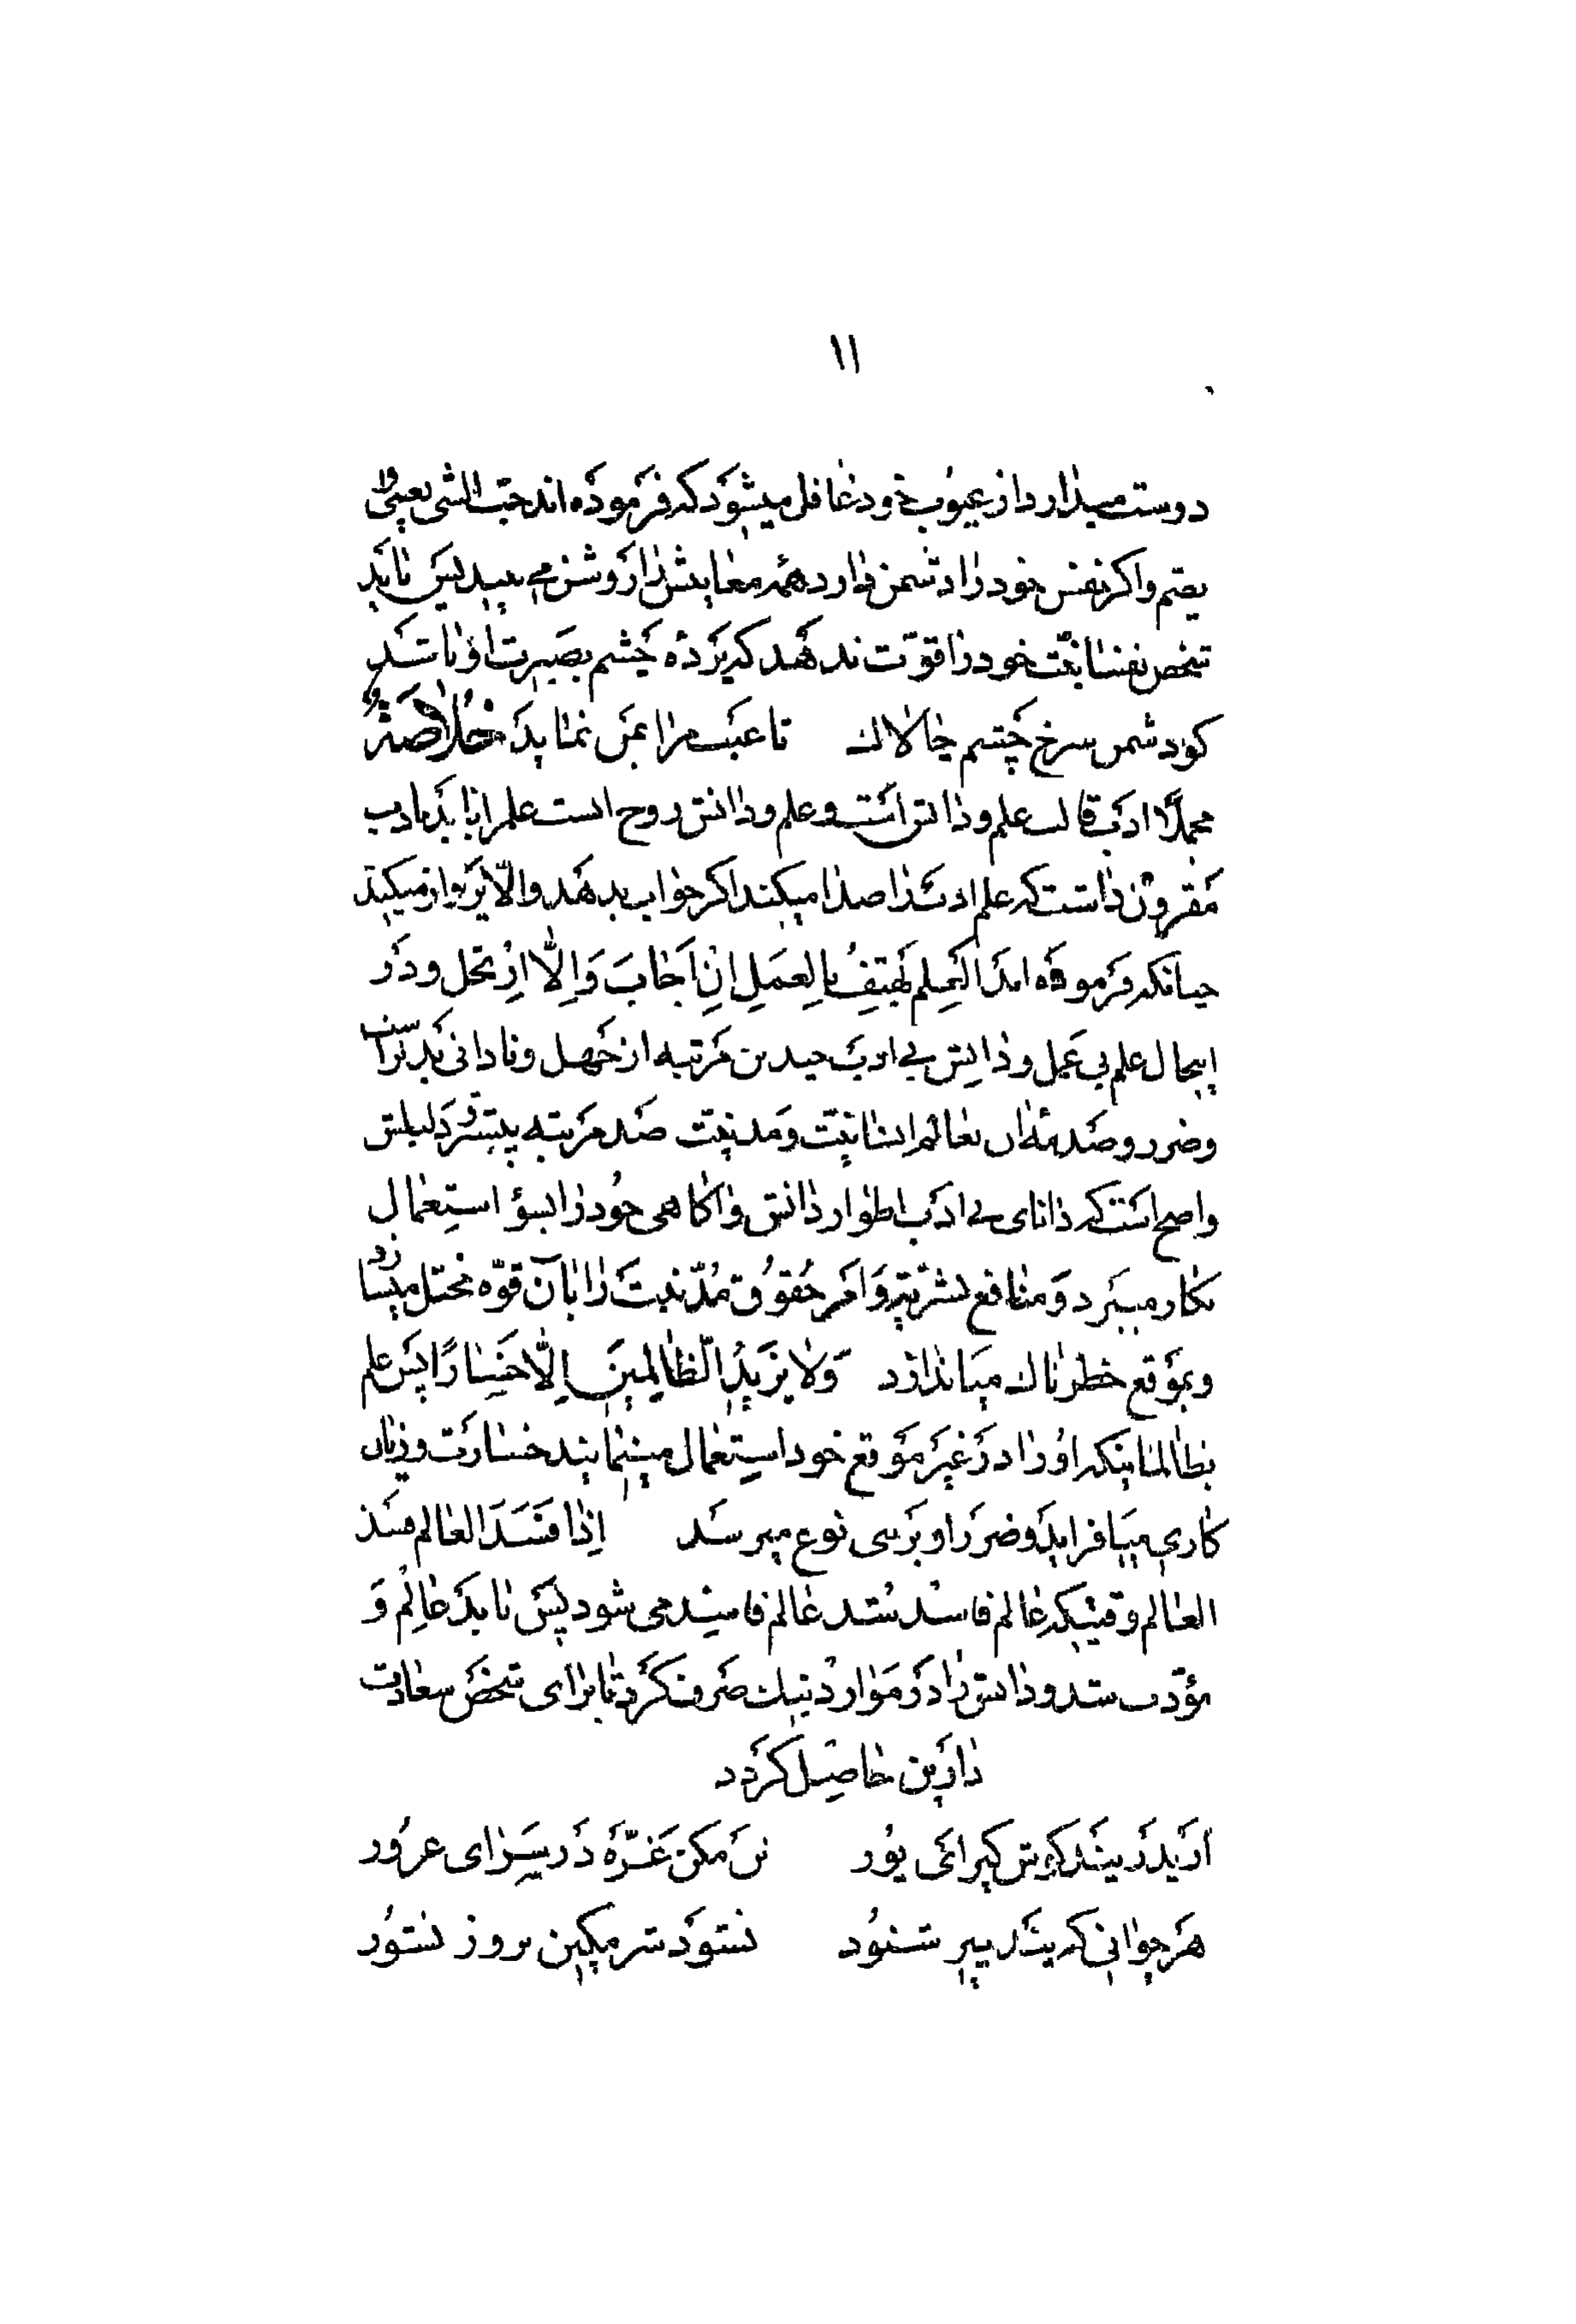 ۱۱
دوست میدارد از عیوب خود غافل میشود که فرموده اند حبّ الشی یعمی و
یصم واکر نفس خود را دشمن دارد همه معایبش را روشن می بیند پس باید
شخص نفسانیّت خود را قوّت ندهد که پرده چشم بصیرت او باشد
کو دشمن سرخ چشم چالاک تا عیب مرا بمن نماید خلاصةً
مجملاً ادب قالب علم و دانش است و علم و دانش روح است علم را باید بادب
مقرون داشت که علم ادب را صدا میکند اکر جواب بدهد والّا پرواز میکند
چنانکه فرموده اند العِلم یَهتِفُ بالعَمَلِ اِن اَجابَ وَاِلّا اِرتحل و در
اینحال علم بی عمل و دانش بی ادب چندین مرتبه از جهل و نادانی بدتر است
وضرر و صدمهٔ آن بعالم انسانیّت و مدنیّت صد مرتبه بیشتر دلیلش
واضح است که دانای بی ادب اطوار دانش و آکاهی خود را بسؤ استعمال
بکار میبرد و منافع بشریّه و امر حقوق مدّنیت را بآن قوّه مختل میسازد
وبموقع خطرناک میاندازد وَلا یَزیدُ الّظالِمینَ اِلّا خَساراً پس علم
بظالمانیکه او را در غیر موقع خود استعمال مینمایند خسارت و زیان
کاری میافزاید و ضرر او بر بنی نوع میرسد اِذا فَسَدَ العالِم فسد
العالم وقتیکه عالم فاسد شد عالم فاسد می شود پس باید عالِم وَ
مؤدّب شد و دانش را در موارد نیک صرف کرد تا برای شخص سعادت
دارین حاصل کردد
از پدر پند کوش کیر ای پور تن مکن غرّه در سرای غرور
هر جوانی که پند پیر شنود نشود شرمکین بروز نشور